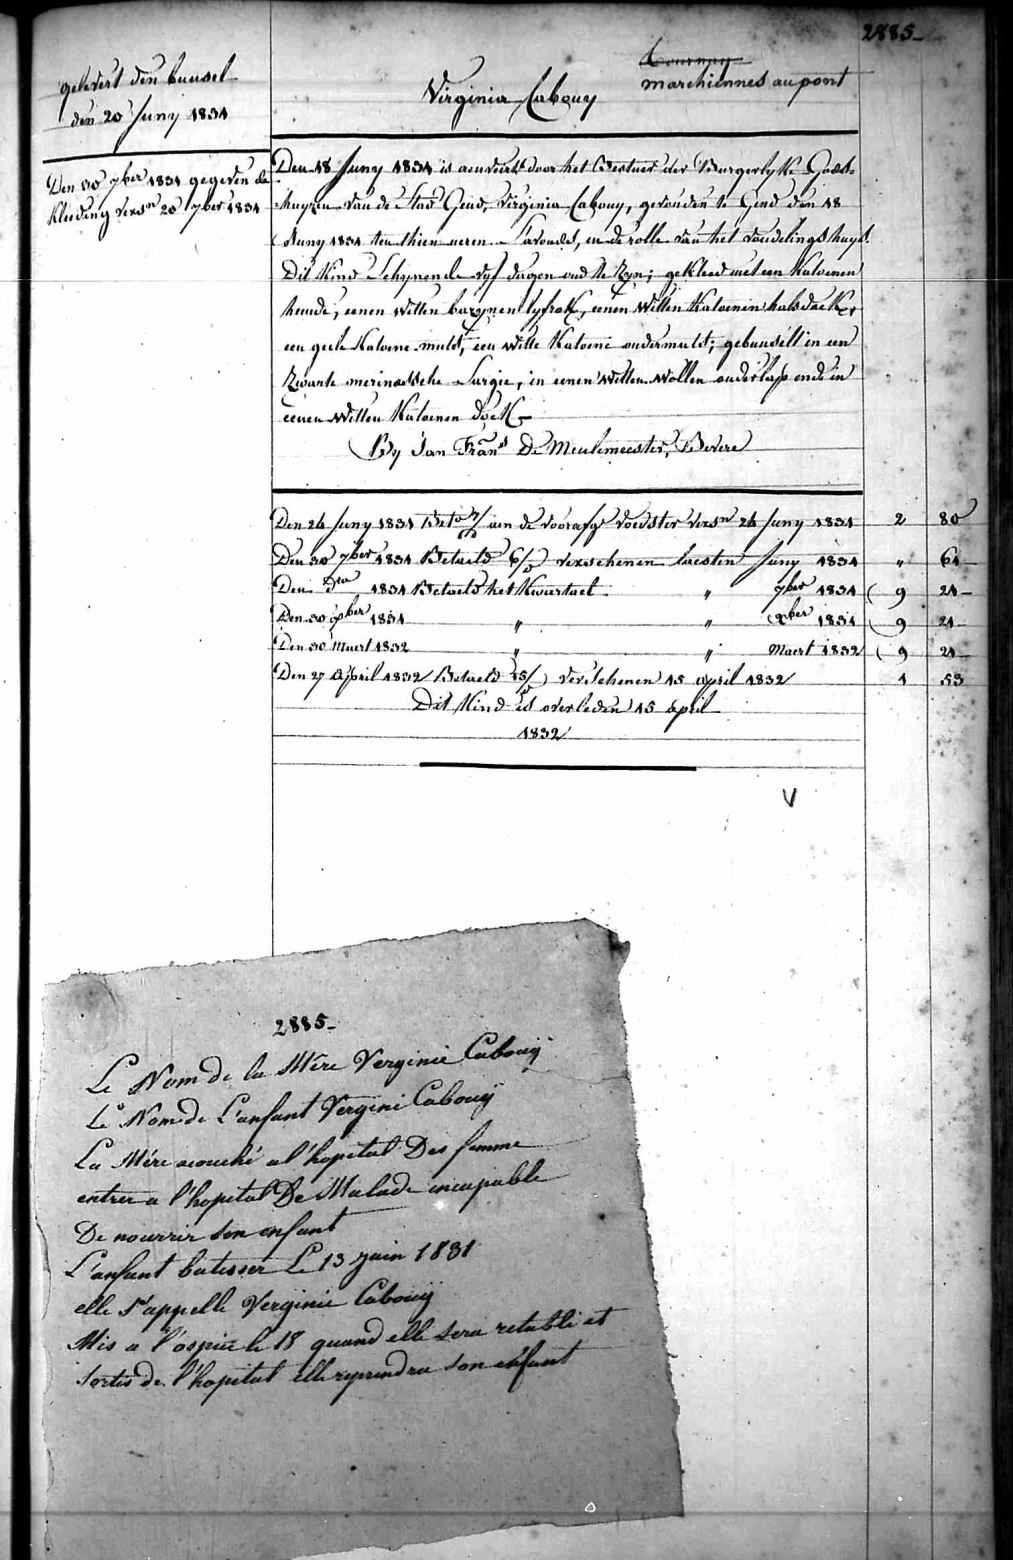 2885_
gelevert den bunsel
den 20 Juny 1831
Den 30 7ber 1831 gegeven de
kleeding versn 20 7ber 1831
Tournay
marchiennes au pont
Virginia Cabouy
Den 18 Juny 1831 is aenveird door het Bestuer der Burgerlyke Gods-
huyzen van de Stad Gend, Virginia Cabouy, gevonden te Gend den 18
Juny 1831 ten thien ueren 's avonds, in de rolle van het vondelingshuys.
Dit Kind schynende vyf dagen oud te zyn; gekleed met een Katoenen
hemde, eenen witten bazynen lyfrok, eenen witten Katoenen halsdoek,
een geele Katoene muts, een witte Katoene ondermuts; gebunselt in een
zwarte merinossche sargie, in eenen witten wollen onderlap ende in
eenen witten Katoenen doek
By Jan Frans De Meulemeester, Bevere
Den 24 Juny 1831 Bet aen de voorafg voedster versn 24 Juny 1831 2 80
Den 30 7ber 1831 Betaeld 6/ verschenen laesten Juny 1831 " 61
Den dto 1831 Betaeld het Kwartael " 7ber 1831 9 21
Den 30 xber 1831 " " xber 1831 9 21
Den 30 Maert 1832 " " Maert 1832 9 21
Den 27 April 1832 Betaeld 15/ verschenen 15 april 1832 1 53
Dit Kind is overleden 15 april
1832
V
2885_
Le Nom de la Mére Verginie Cabouÿ
Le Nom de L'anfant Vergini Cabouÿ
La Mére acouché a l'hopital Des femme
entrer a l'hopital De Malade incapable
De nourrir son enfant
L'anfant batisser Le 13 juin 1831
elle s'appelle Verginie Cabouÿ
Mis a l'ospice le 18 quand elle sera retabli et
sortis de l'hopital elle reprendra son enfant